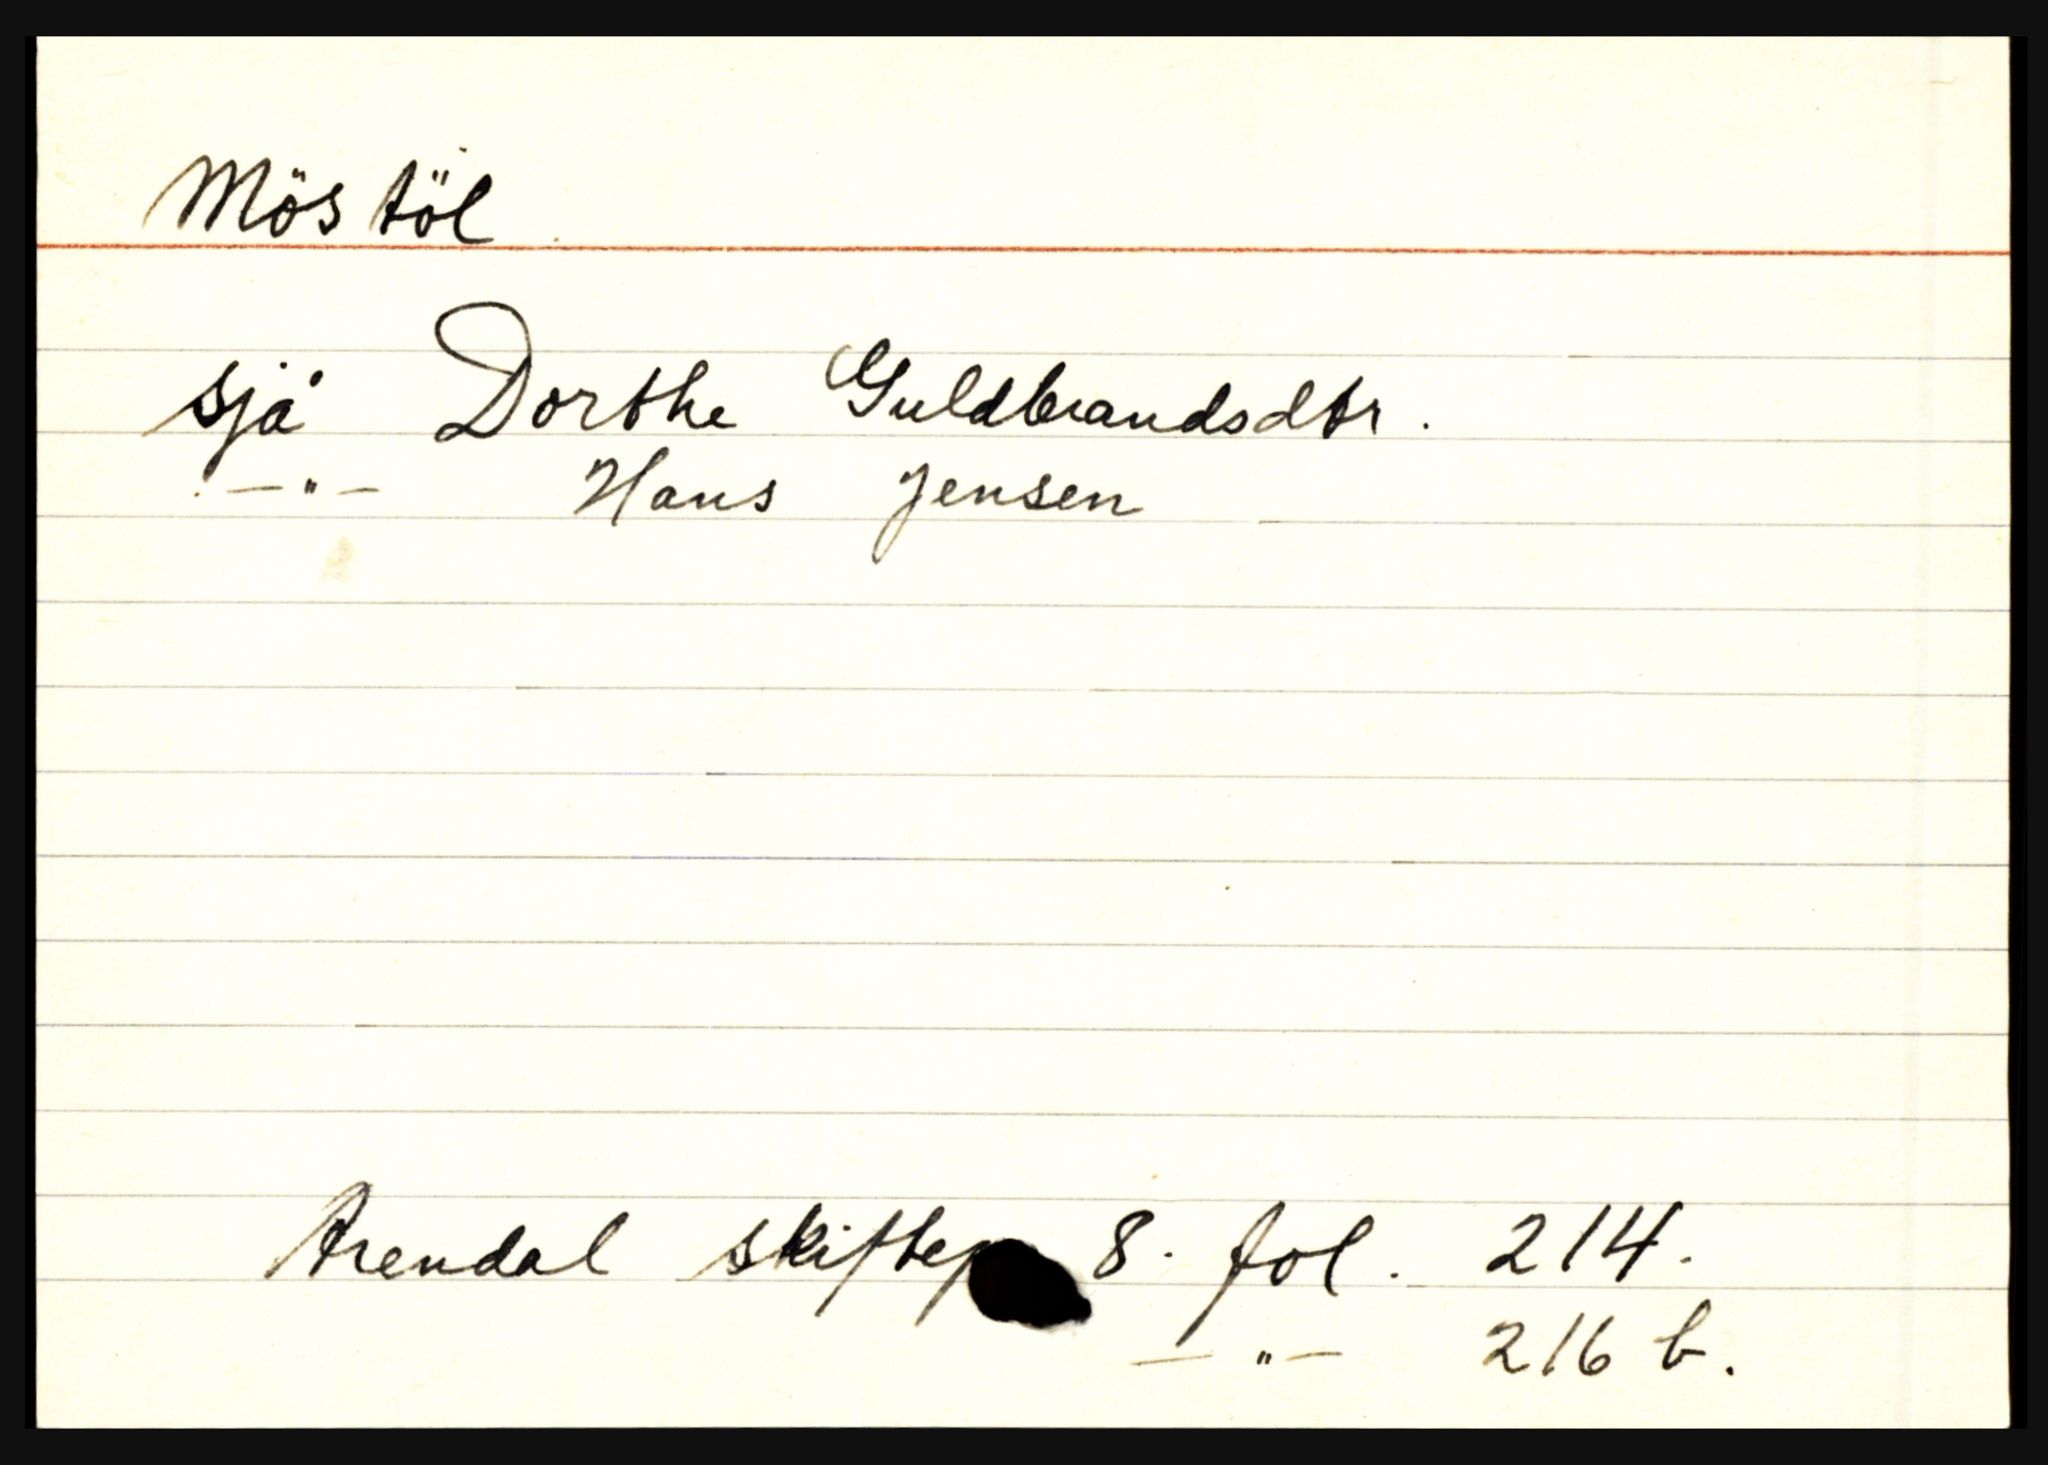 Möstöl
sjå Dorthe Guldbrandsdtr.
— " — Hans Jensen
Arendal skiftep 8. fol. 214.
— " — 216 b.